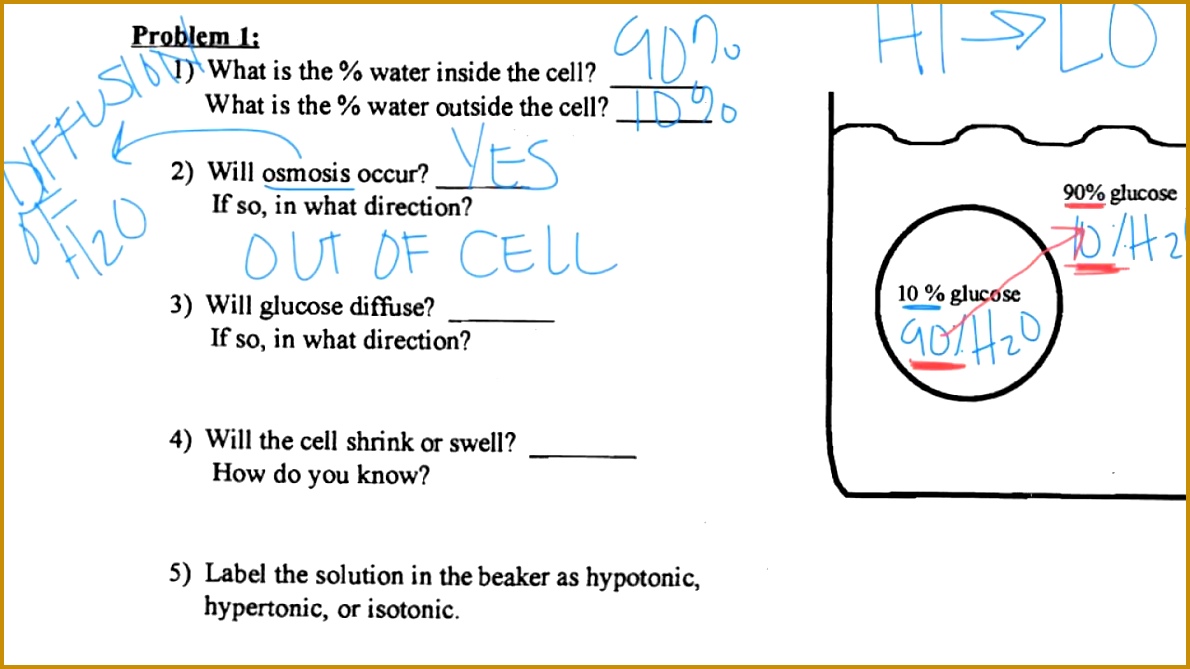 Problem 1:
1) What is the % water inside the cell? 90%
What is the % water outside the cell? 10%
DIFFUSION
OF
H2O
2) Will osmosis occur? YES
If so, in what direction?
OUT OF CELL
3) Will glucose diffuse?
If so, in what direction?
4) Will the cell shrink or swell?
How do you know?
5) Label the solution in the beaker as hypotonic,
hypertonic, or isotonic.
HI → LO
90% glucose
10% H2
10 % glucose
90% H2O